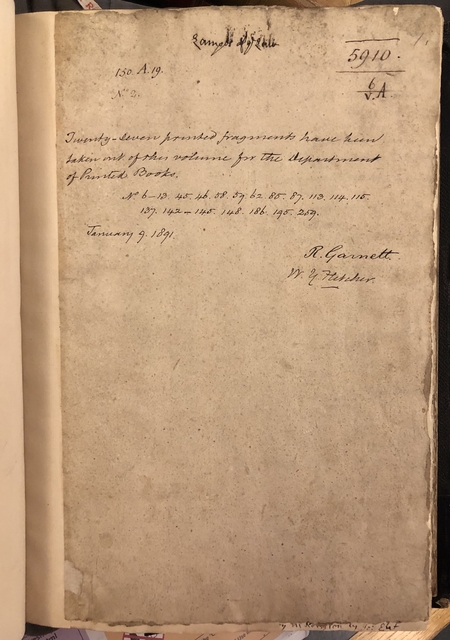 5910.
150. A. 19.
6
V. A
Nº 2.
Twenty-seven printed fragments have been
taken out of this volume for the Department
of Printed Books.
Nº 6–13. 45. 46. 58. 59. 62. 85. 87. 113. 114. 115.
137. 142–145. 148. 186. 195. 259.
January 9. 1891.
R. Garnett.
W. Y. Fletcher.